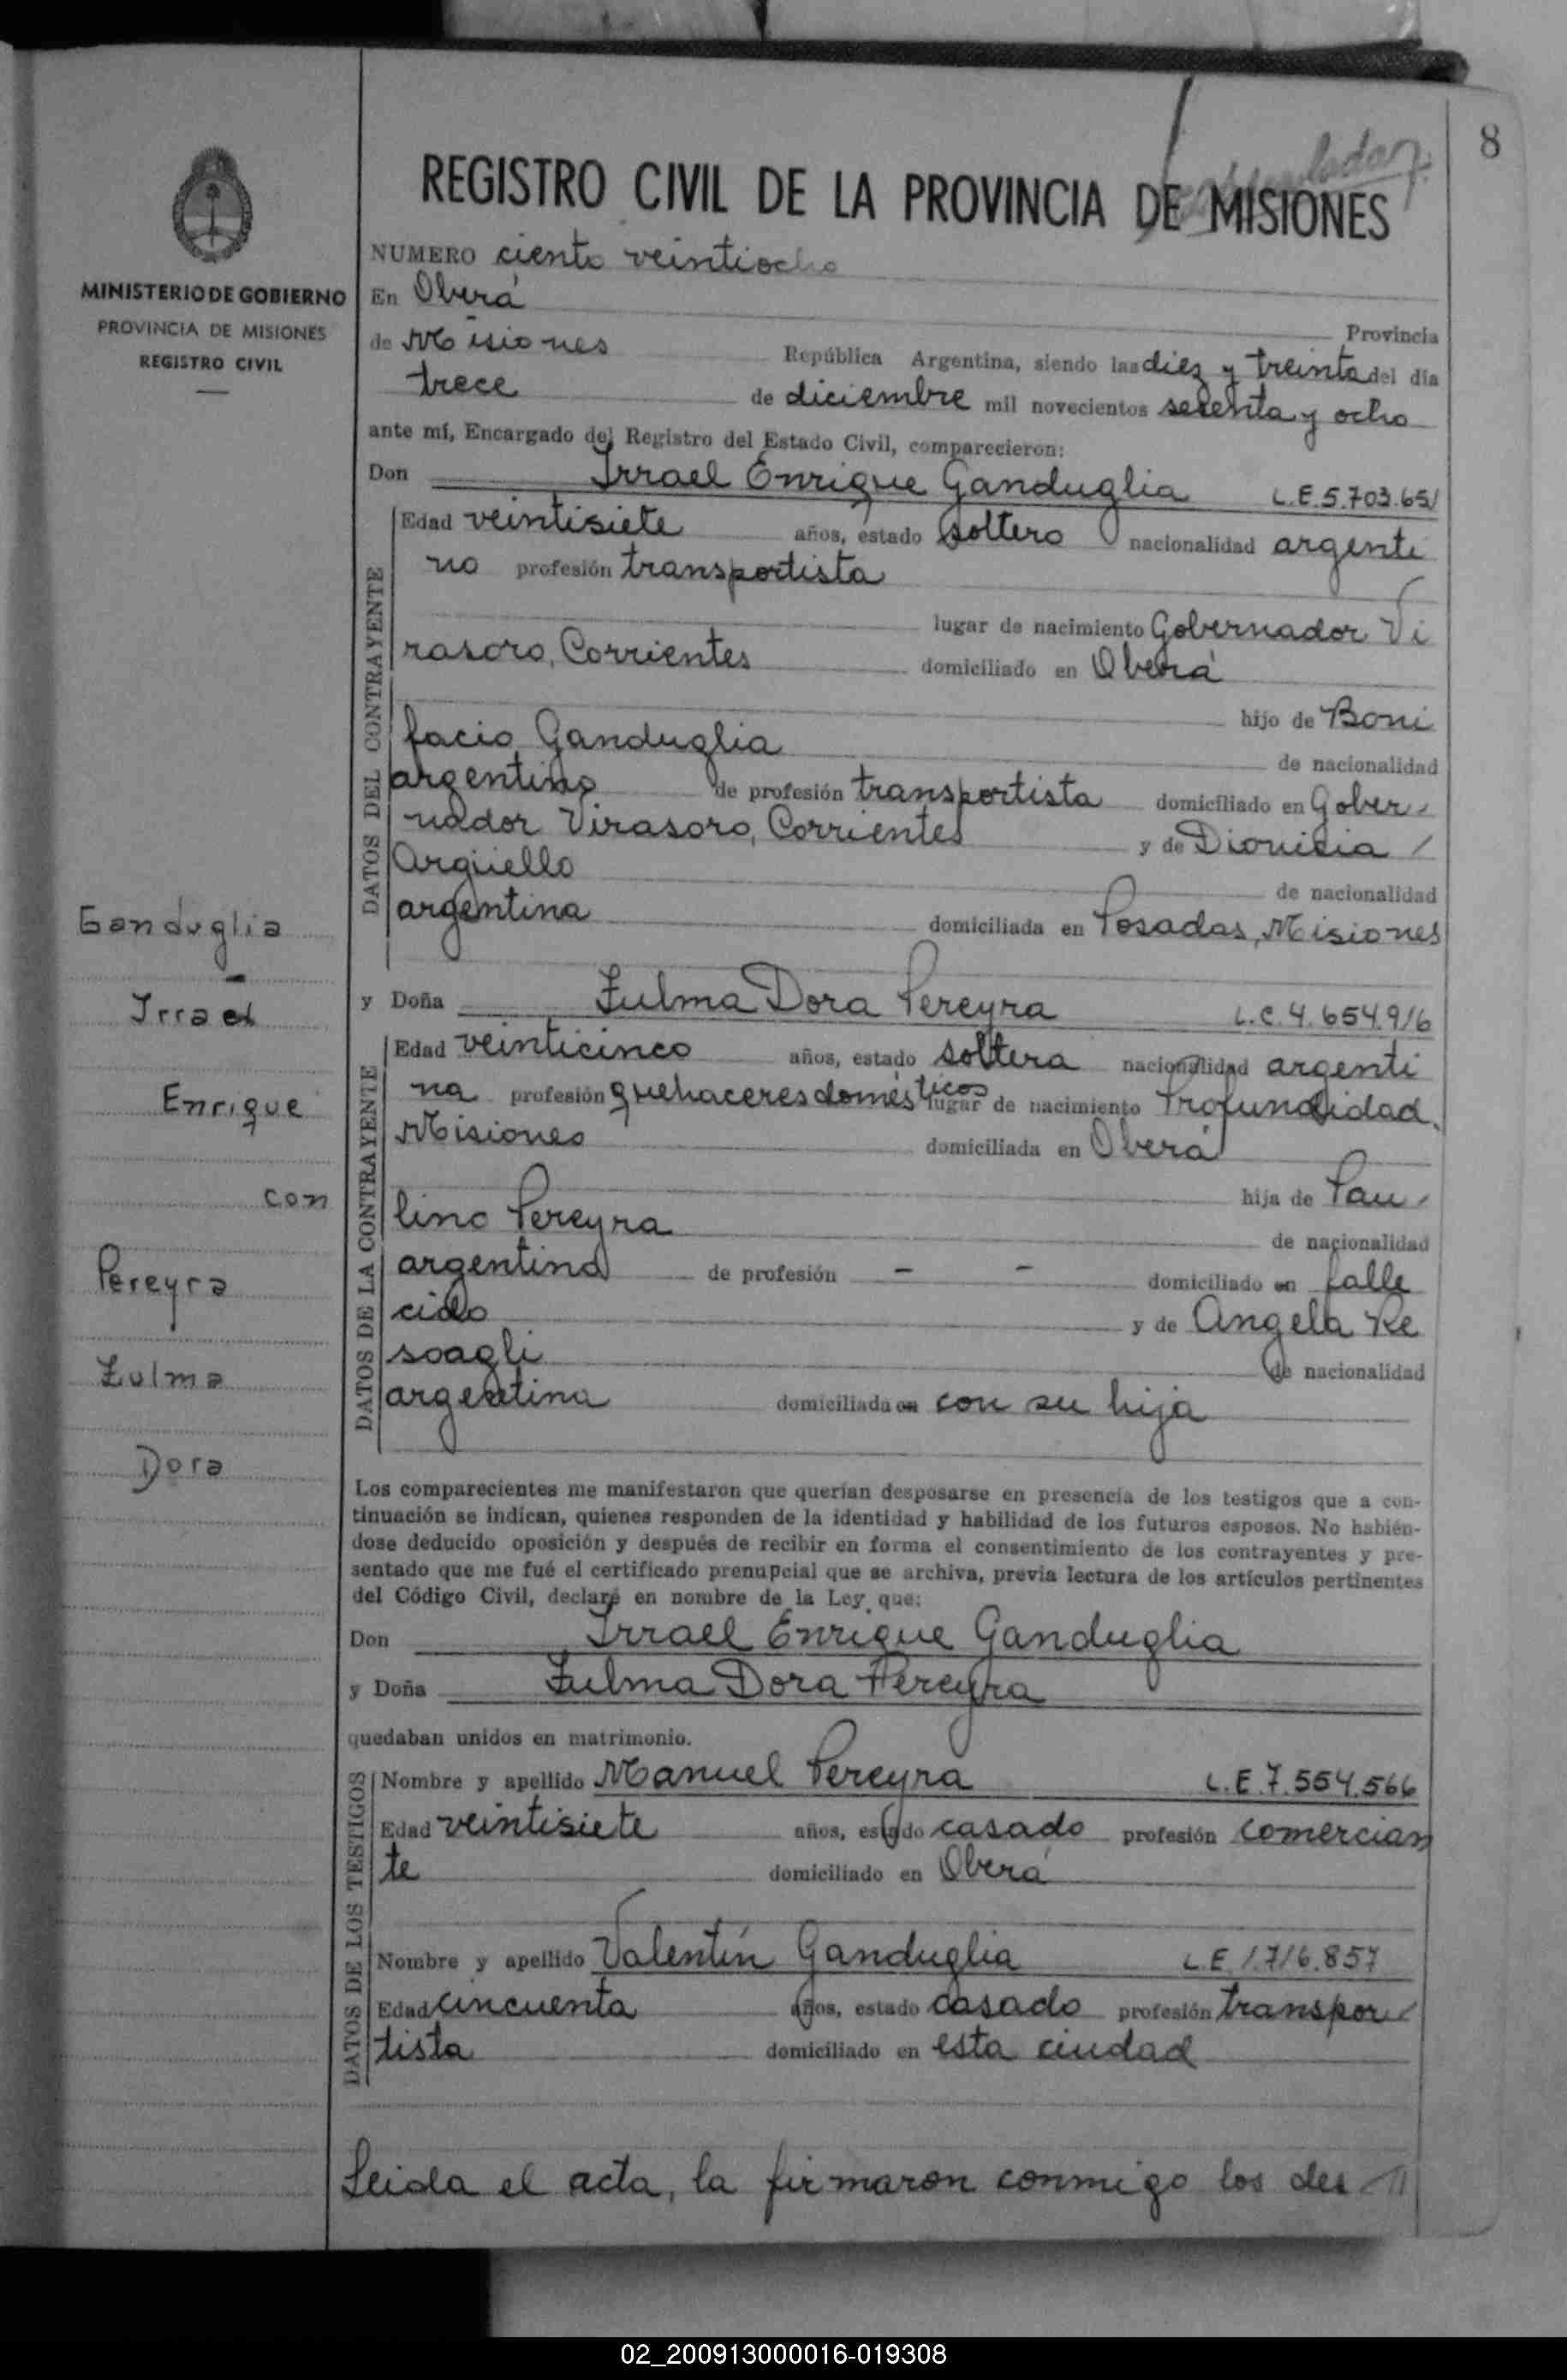 8
REGISTRO CIVIL DE LA PROVINCIA DE MISIONES
MINISTERIO DE GOBIERNO
PROVINCIA DE MISIONES
REGISTRO CIVIL
NUMERO ciento veintiocho
En Oberá
Provincia
de Misiones República Argentina, siendo las diez y treinta del día
trece de diciembre mil novecientos setenta y ocho
ante mí, Encargado del Registro del Estado Civil, comparecieron:
Don Irrael Enrique Ganduglia L.E. 5.703.651
DATOS DEL CONTRAYENTE
Edad veintisiete años, estado soltero nacionalidad argenti
no profesión transportista
lugar de nacimiento Gobernador Vi
rasoro, Corrientes domiciliado en Oberá
hijo de Boni
facio Ganduglia
de nacionalidad
argentino de profesión transportista domiciliado en Gober
nador Virasoro, Corrientes y de Dionicia
Argüello
de nacionalidad
argentina domiciliada en Posadas, Misiones
y Doña Zulma Dora Pereyra L.C. 4.654.916
DATOS DE LA CONTRAYENTE
Edad veinticinco años, estado soltera nacionalidad argenti
na profesión quehaceres domésticos lugar de nacimiento Profundidad,
Misiones domiciliada en Oberá
hija de Pau
lino Pereyra
de nacionalidad
argentino de profesión - - domiciliado en falle
cido y de Angela Re
soagli
de nacionalidad
argentina domiciliada en con su hija
Los comparecientes me manifestaron que querían desposarse en presencia de los testigos que a con-
tinuación se indican, quienes responden de la identidad y habilidad de los futuros esposos. No habién-
dose deducido oposición y después de recibir en forma el consentimiento de los contrayentes y pre-
sentado que me fué el certificado prenupcial que se archiva, previa lectura de los artículos pertinentes
del Código Civil, declaré en nombre de la Ley que:
Don Irrael Enrique Ganduglia
y Doña Zulma Dora Pereyra
quedaban unidos en matrimonio.
DATOS DE LOS TESTIGOS
Nombre y apellido Manuel Pereyra L.E. 7.554.566
Edad veintisiete años, estado casado profesión comercian
te domiciliado en Oberá
Nombre y apellido Valentín Ganduglia L.E. 1.716.857
Edad cincuenta años, estado casado profesión transpor
tista domiciliado en esta ciudad
Leida el acta, la firmaron conmigo los des
Ganduglia
Irrael
Enrique
con
Pereyra
Zulma
Dora
02_200913000016-019308